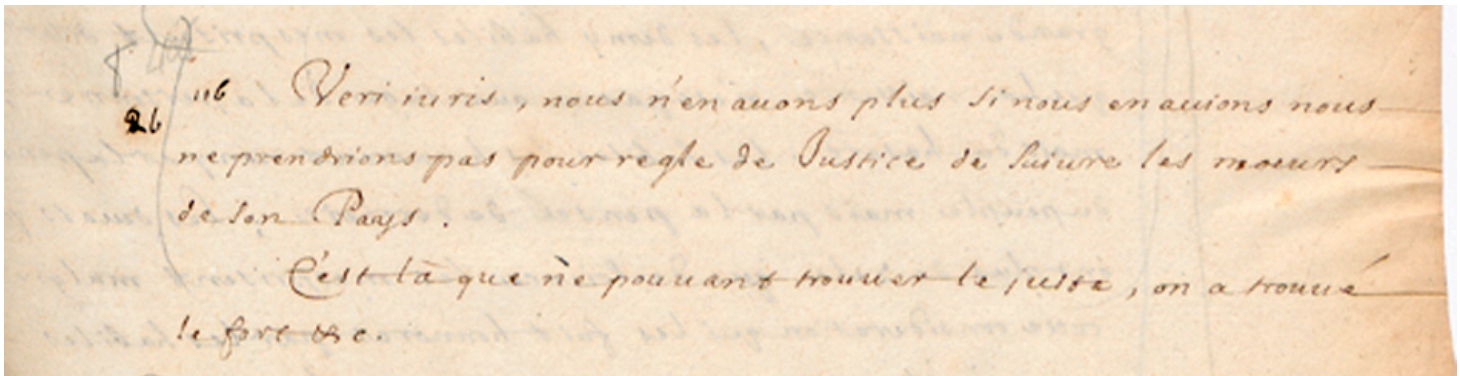 116 Veri iuris, nous n'en auons plus si nous en auions nous
26
ne prendrions pas pour regle de Justice de suiure les moeurs
de son Pays.
C'est là que ne pouuant trouuer le juste, on a trouué
le fort &c.